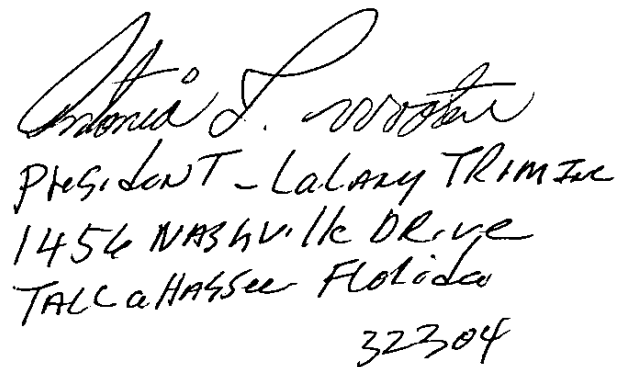 Antonia L. Wooten
President - Lalany Trim Inc
1456 Nashville Drive
Tallahassee Florida
32304